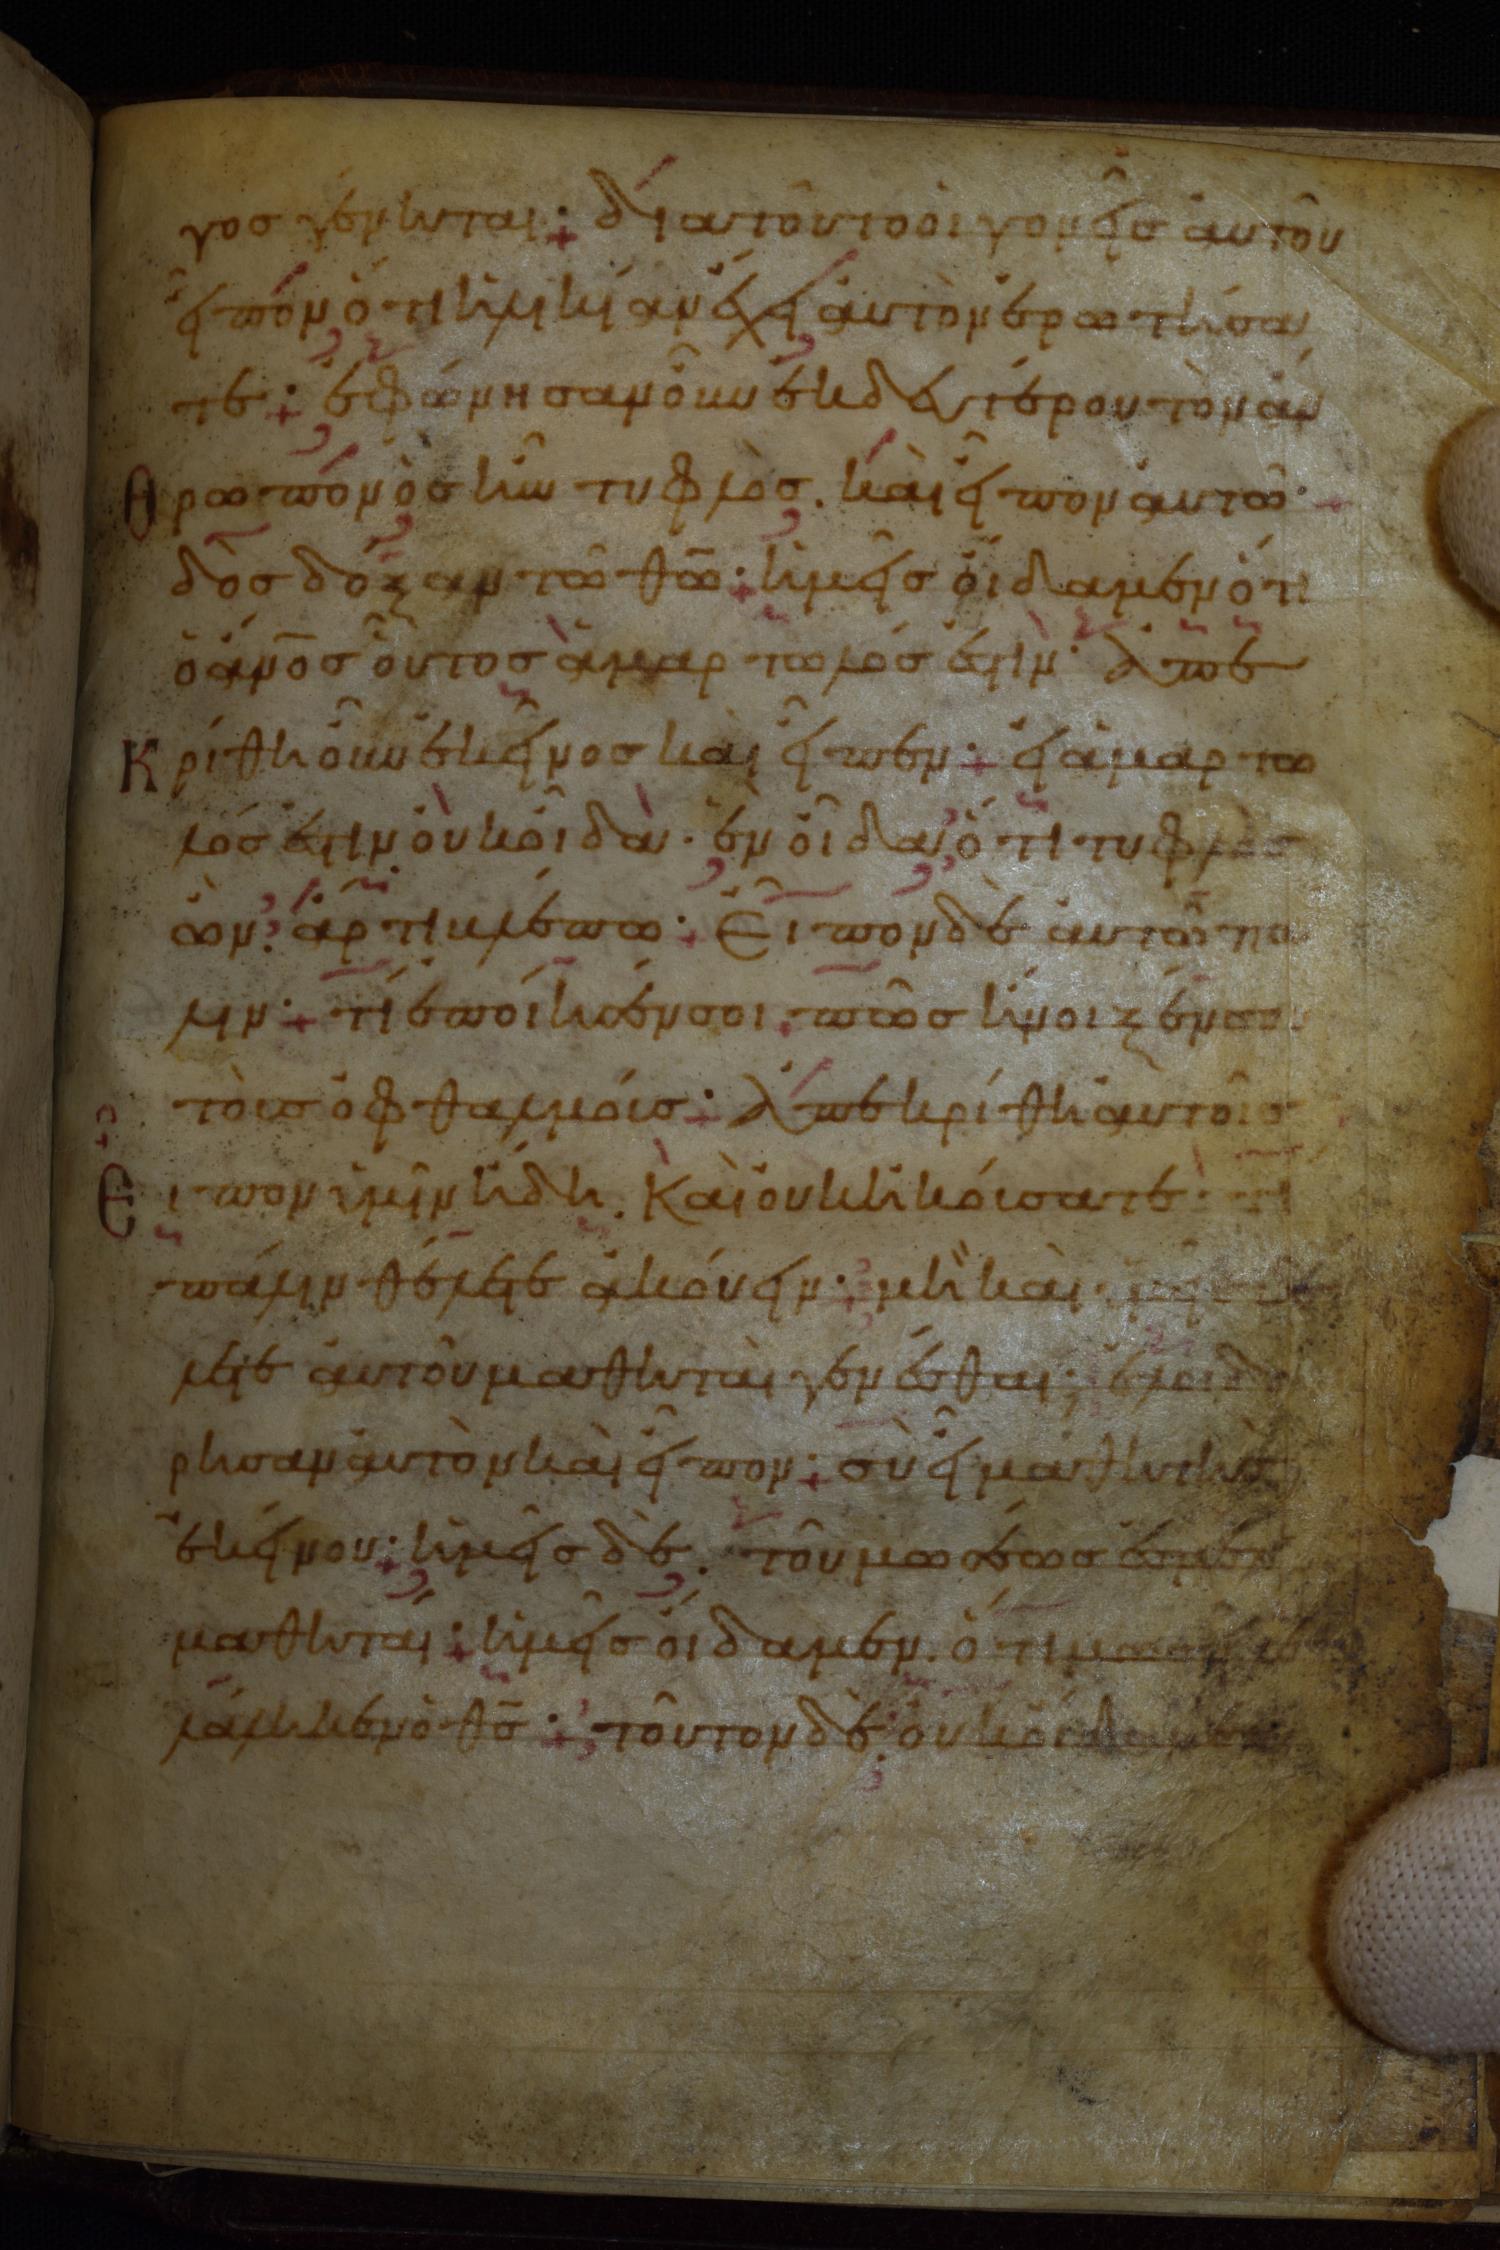 γοσ γένηται· διατοῦτο ὁι γονεῖσ ἀυτοῦ
εἶπον ὅτι ἡλικίαν ἔχει ἀυτὸν ἐρωτήσα
τε· ἐφώνησαν οὖν ἐκ δευτέρου τὸν ἄν
θρωπον ὃσ ἦν τυφλὸσ. καὶ εἶπον ἀυτῶ·
δὸσ δόξαν τῶ θω· ἡμεῖσ οἴδαμεν ὅτι
ὁ ἀνοσ οὗτοσ ἁμαρτωλόσ ἐστιν· ἀπε
κρίθη οὖν ἐκεῖνοσ καὶ εἶπεν· εἰ ἁμαρτω
λόσ ἐστιν οὐκ οἶδα· ἓν οἶδα ὅτι τυφλὸσ
ὢν· ἄρτι βλέπω· Εἶπον δὲ ἀυτῶ πά
λιν· τί ἐποίησέν σοι. πῶσ ἤνοιξέν σου
τοὺσ ὀφθαλμοὺσ· ἀπεκρίθη ἀυτοῖσ
Εἶπον ὑμῖν ἤδη. Καὶ οὐκ ἠκόυσατε· τί
πάλιν θέλετε ἀκόυειν· μὴ καὶ ὑμεῖσ θέ
λετε ἀυτοῦ μαθηταὶ γενέσθαι· ἐλοιδό
ρησαν ἀυτὸν καὶ εἶπον· σὺ εἶ μαθητὴσ
ἐκείνου· ἡμεῖσ δὲ. τοῦ μωσέωσ ἐσμὲν
μαθηταί· ἡμεῖσ οἴδαμεν. ὅτι μωσεῖ λε
λάληκεν ὁ θσ· τοῦτον δὲ. οὐκ οἴδαμεν